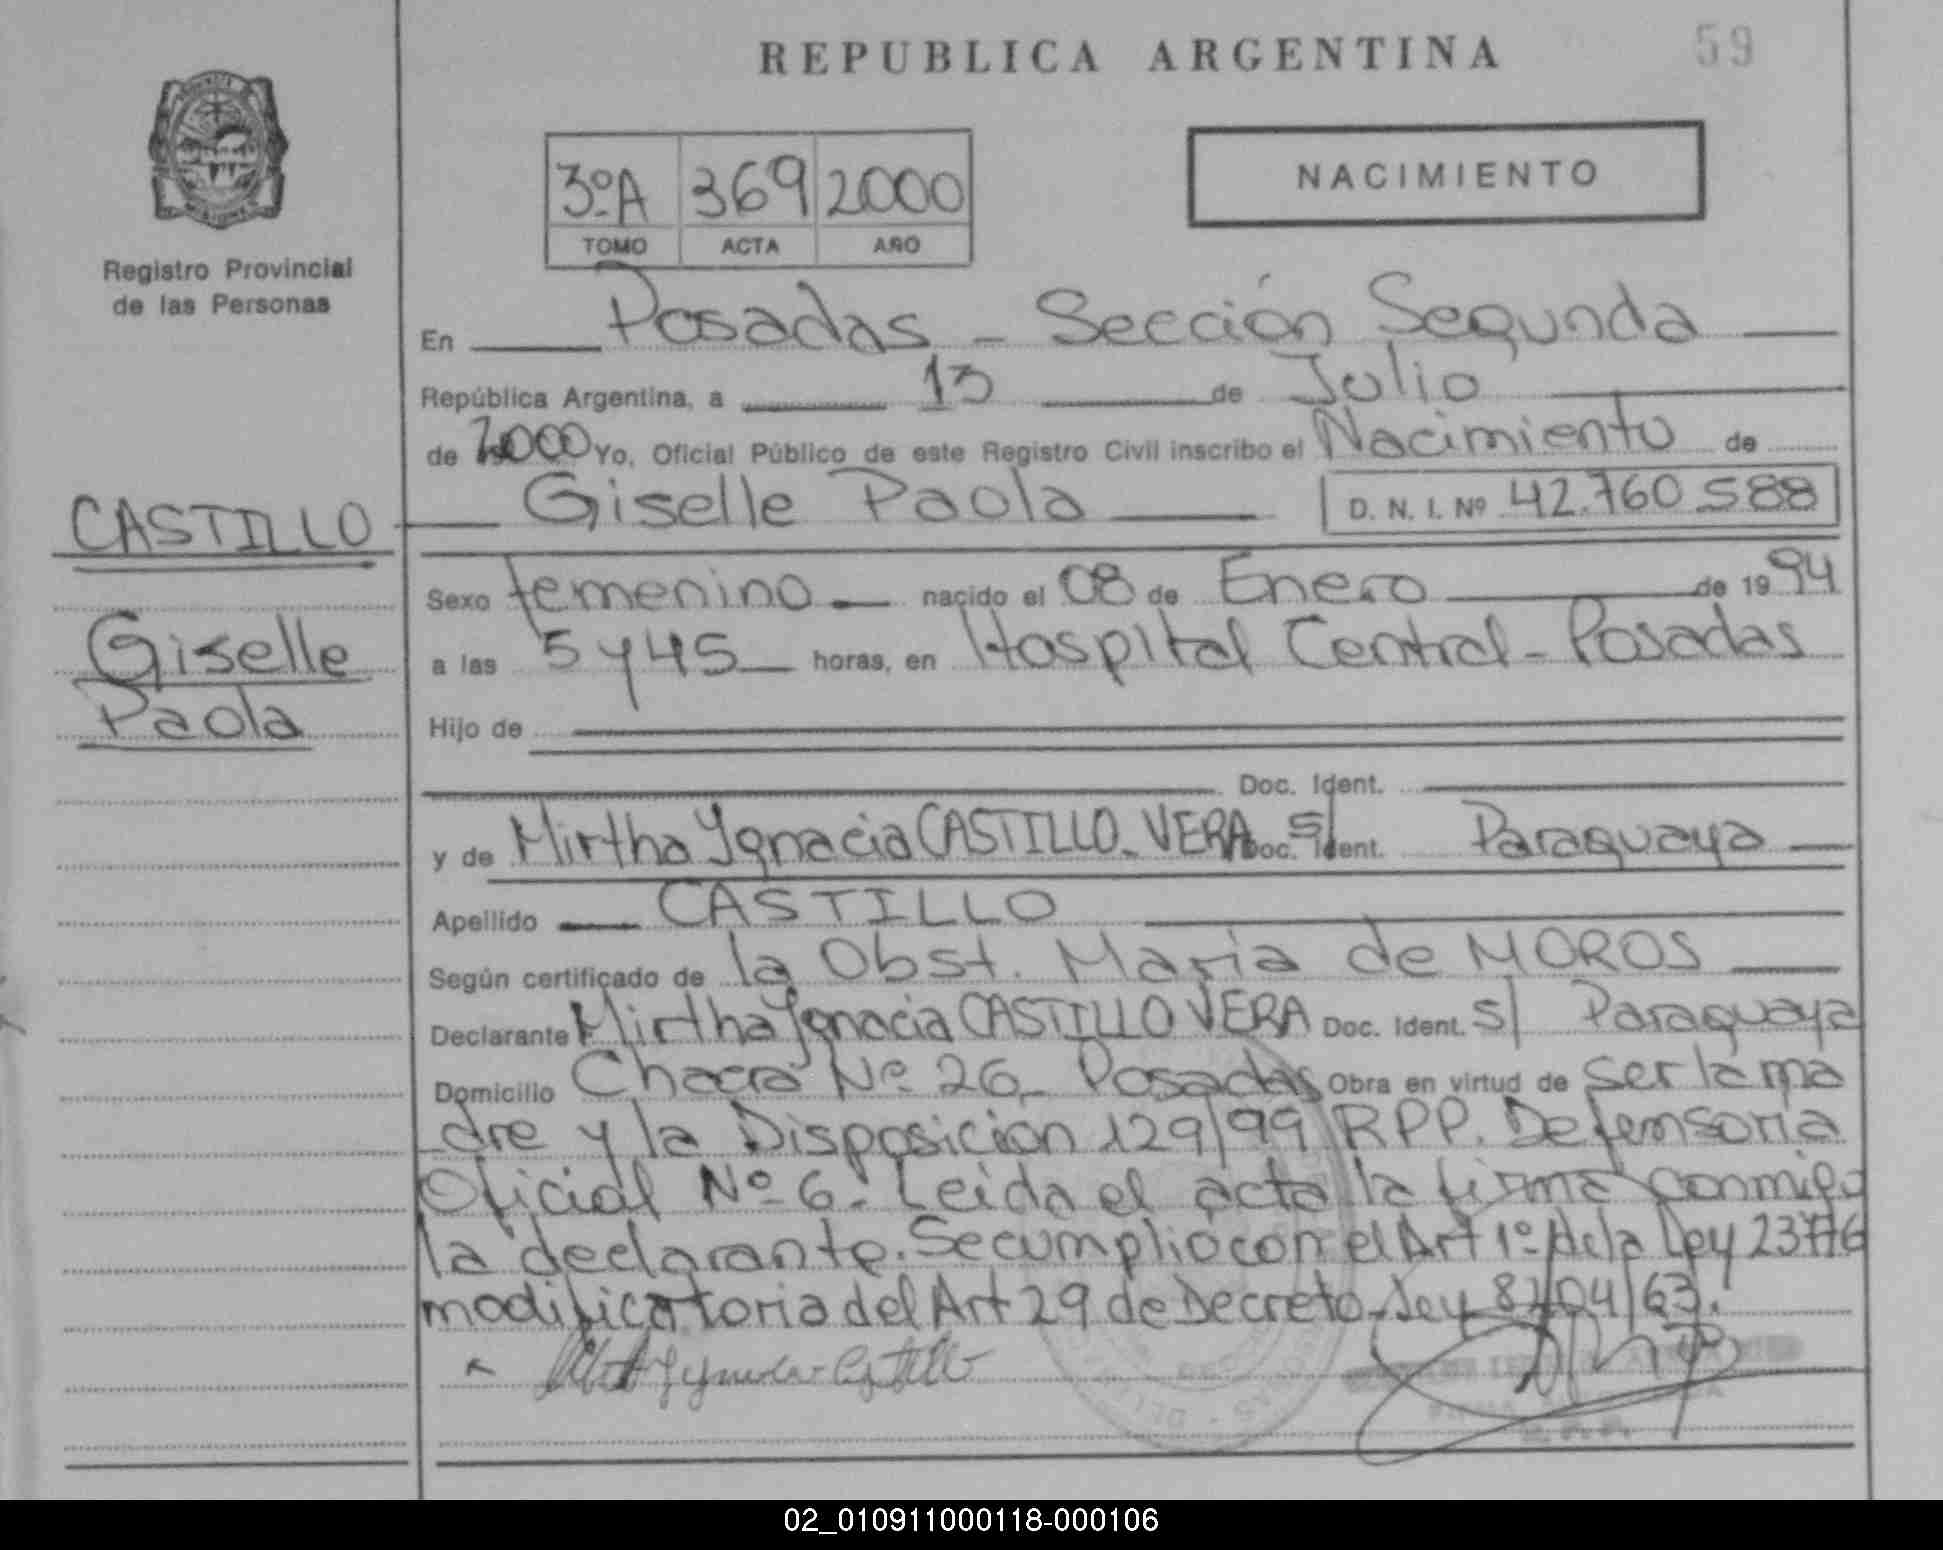 REPUBLICA ARGENTINA
59
Registro Provincial
de las Personas
3ºA 369 2000
TOMO ACTA AÑO
NACIMIENTO
En Posadas - Sección Segunda
República Argentina, a 13 de Julio
de 2000 Yo, Oficial Público de este Registro Civil inscribo el Nacimiento de
Giselle Paola D. N. I. Nº 42.760.588
CASTILLO
Giselle
Paola
Sexo femenino nacido el 08 de Enero de 1994
a las 5 y 45 horas, en Hospital Central - Posadas
Hijo de
Doc. Ident.
y de Mirtha Ygnacia CASTILLO - VERA Doc. Ident. s/ Paraguaya
Apellido CASTILLO
Según certificado de la Obst. Maria de MOROS
Declarante Mirtha Ygnacia CASTILLO VERA Doc. Ident. s/ Paraguaya
Domicilio Chacra Nº 26 - Posadas Obra en virtud de ser la ma
dre y la Disposicion 129/99 RPP. Defensoria
Oficial Nº 6. Leida el acta la firma conmigo
la declarante. Se cumplio con el Art 1º de la Ley 23776
modificatoria del Art 29 de Decreto - Ley 8204/63.
02_010911000118-000106